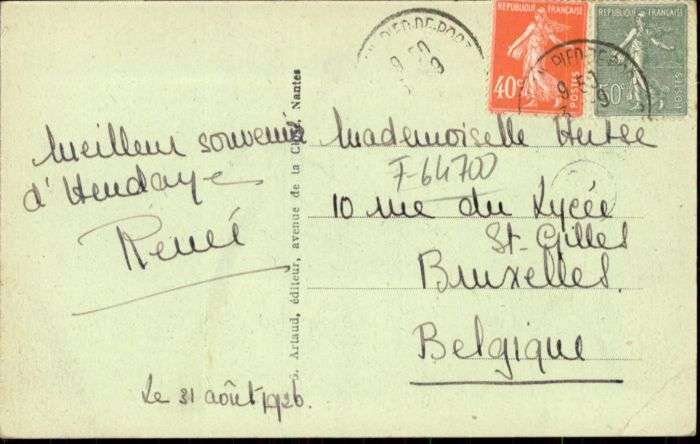 Meilleur souvenir
d'Hendaye
René
Le 31 août 1926.
Artaud, éditeur, avenue de la Nantes
RÉPUBLIQUE FRANÇAISE
40c
POSTES
RÉPUBLIQUE FRANÇAISE
50c
POSTES
PIED-DE-PORT
9 50
9
PIED-DE-
9 50
9
Mademoiselle
F-64700
10 rue du Lycée
St-Gilles
Bruxelles.
Belgique